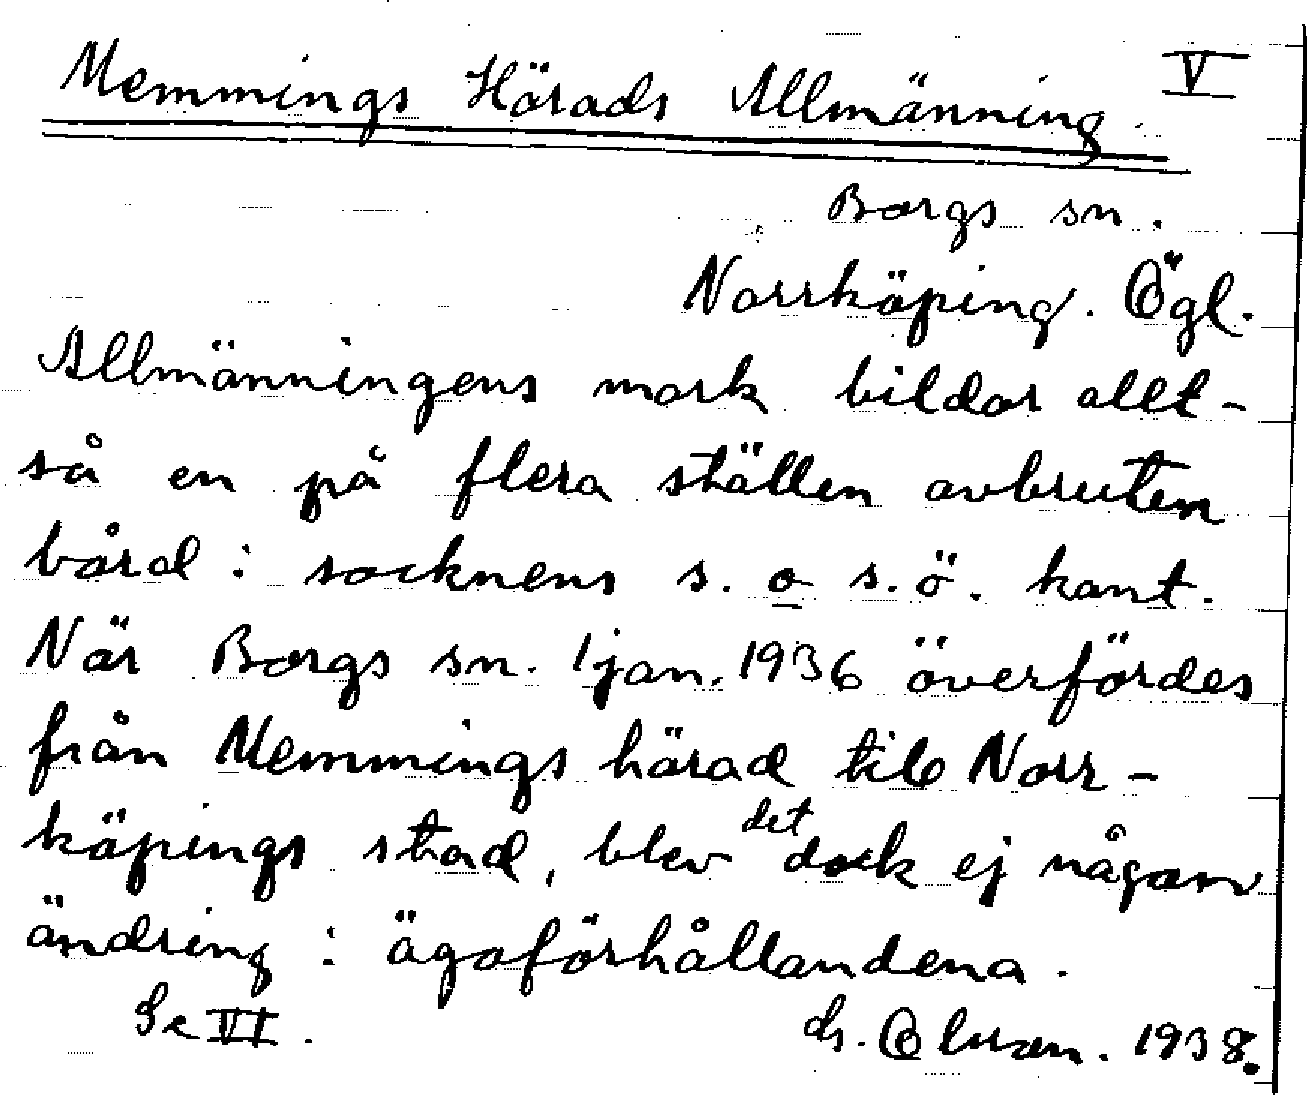 Memmings Härads Allmänning. V
Borgs sn.
Norrköping. Ögl.
Allmänningens mark bildar allt-
så en på flera ställen avbruten
bård i socknens s. o s.ö. kant.
När Borgs sn. 1 jan. 1936 överfördes
från Memmings härad till Norr-
köpings stad, blev det dock ej någon
ändring i ägoförhållandena.
Se VI. 1938.